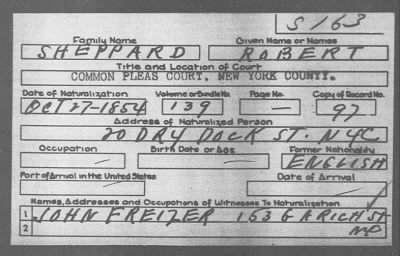 S163
Family Name Given Name or Names
SHEPPARD ROBERT
Title and Location of Court
COMMON PLEAS COURT, NEW YORK COUNTY.
Date of Naturalization Volume or Bundle No. Page No. Copy of Record No.
OCT 27-1854 139 — 97
Address of Naturalized Person
20 DRY DOCK ST. NYC
Occupation Birth Date or Age Former Nationality
ENGLISH
Port of Arrival in the United States Date of Arrival
Names, Addresses and Occupations of Witnesses To Naturalization
1 JOHN FREIZER 163 G ARICH ST
2